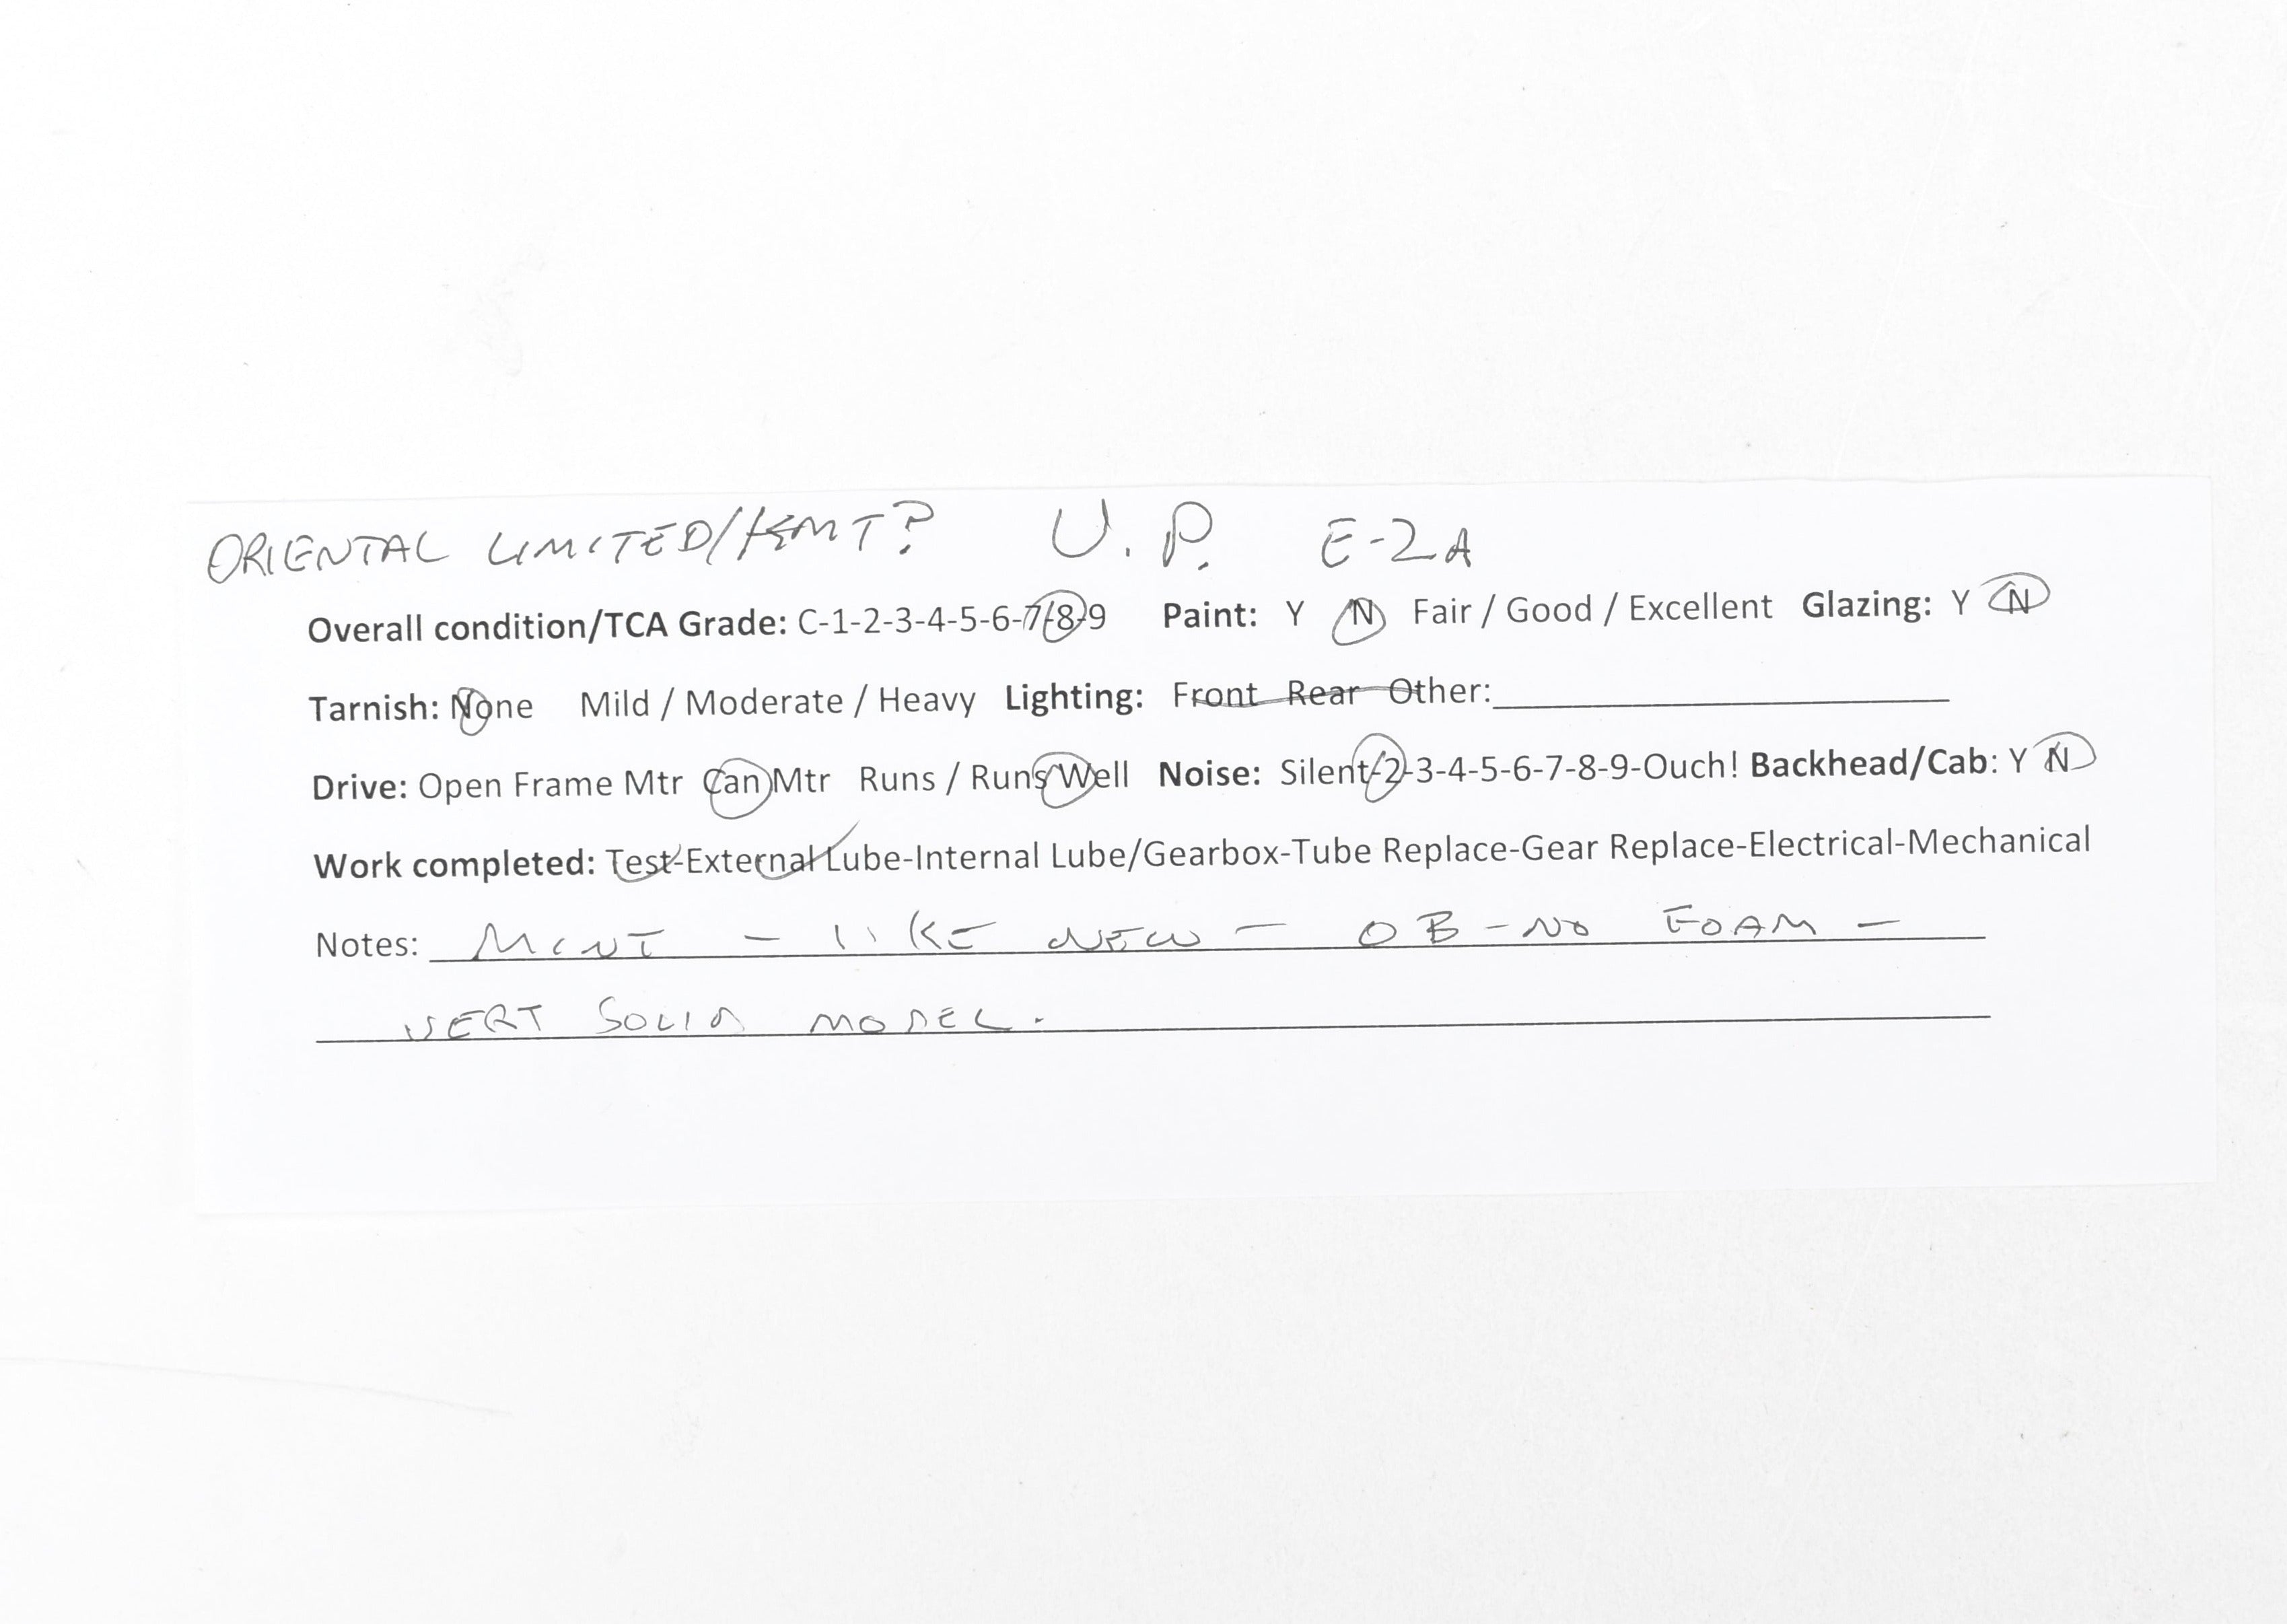 ORIENTAL LIMITED/KMT? U.P. E-2A
Overall condition/TCA Grade: C-1-2-3-4-5-6-7-8-9 Paint: Y N Fair / Good / Excellent Glazing: Y N
Tarnish: None Mild / Moderate / Heavy Lighting: Front Rear Other:
Drive: Open Frame Mtr Can Mtr Runs / Runs Well Noise: Silent-2-3-4-5-6-7-8-9-Ouch! Backhead/Cab: Y N
Work completed: Test-External Lube-Internal Lube/Gearbox-Tube Replace-Gear Replace-Electrical-Mechanical
Notes: MINT - LIKE NEW - OB - NO FOAM -
VERY SOLID MODEL.